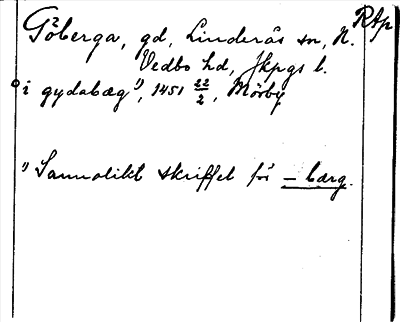 RAp
Göberga, gd, Linderås sn, N.
Vedbo hd, Jkpgs l.
i gydabæg¹⁾, 1451 22/2, Mörby
¹⁾ Sannolikt skriffel för – bærg.